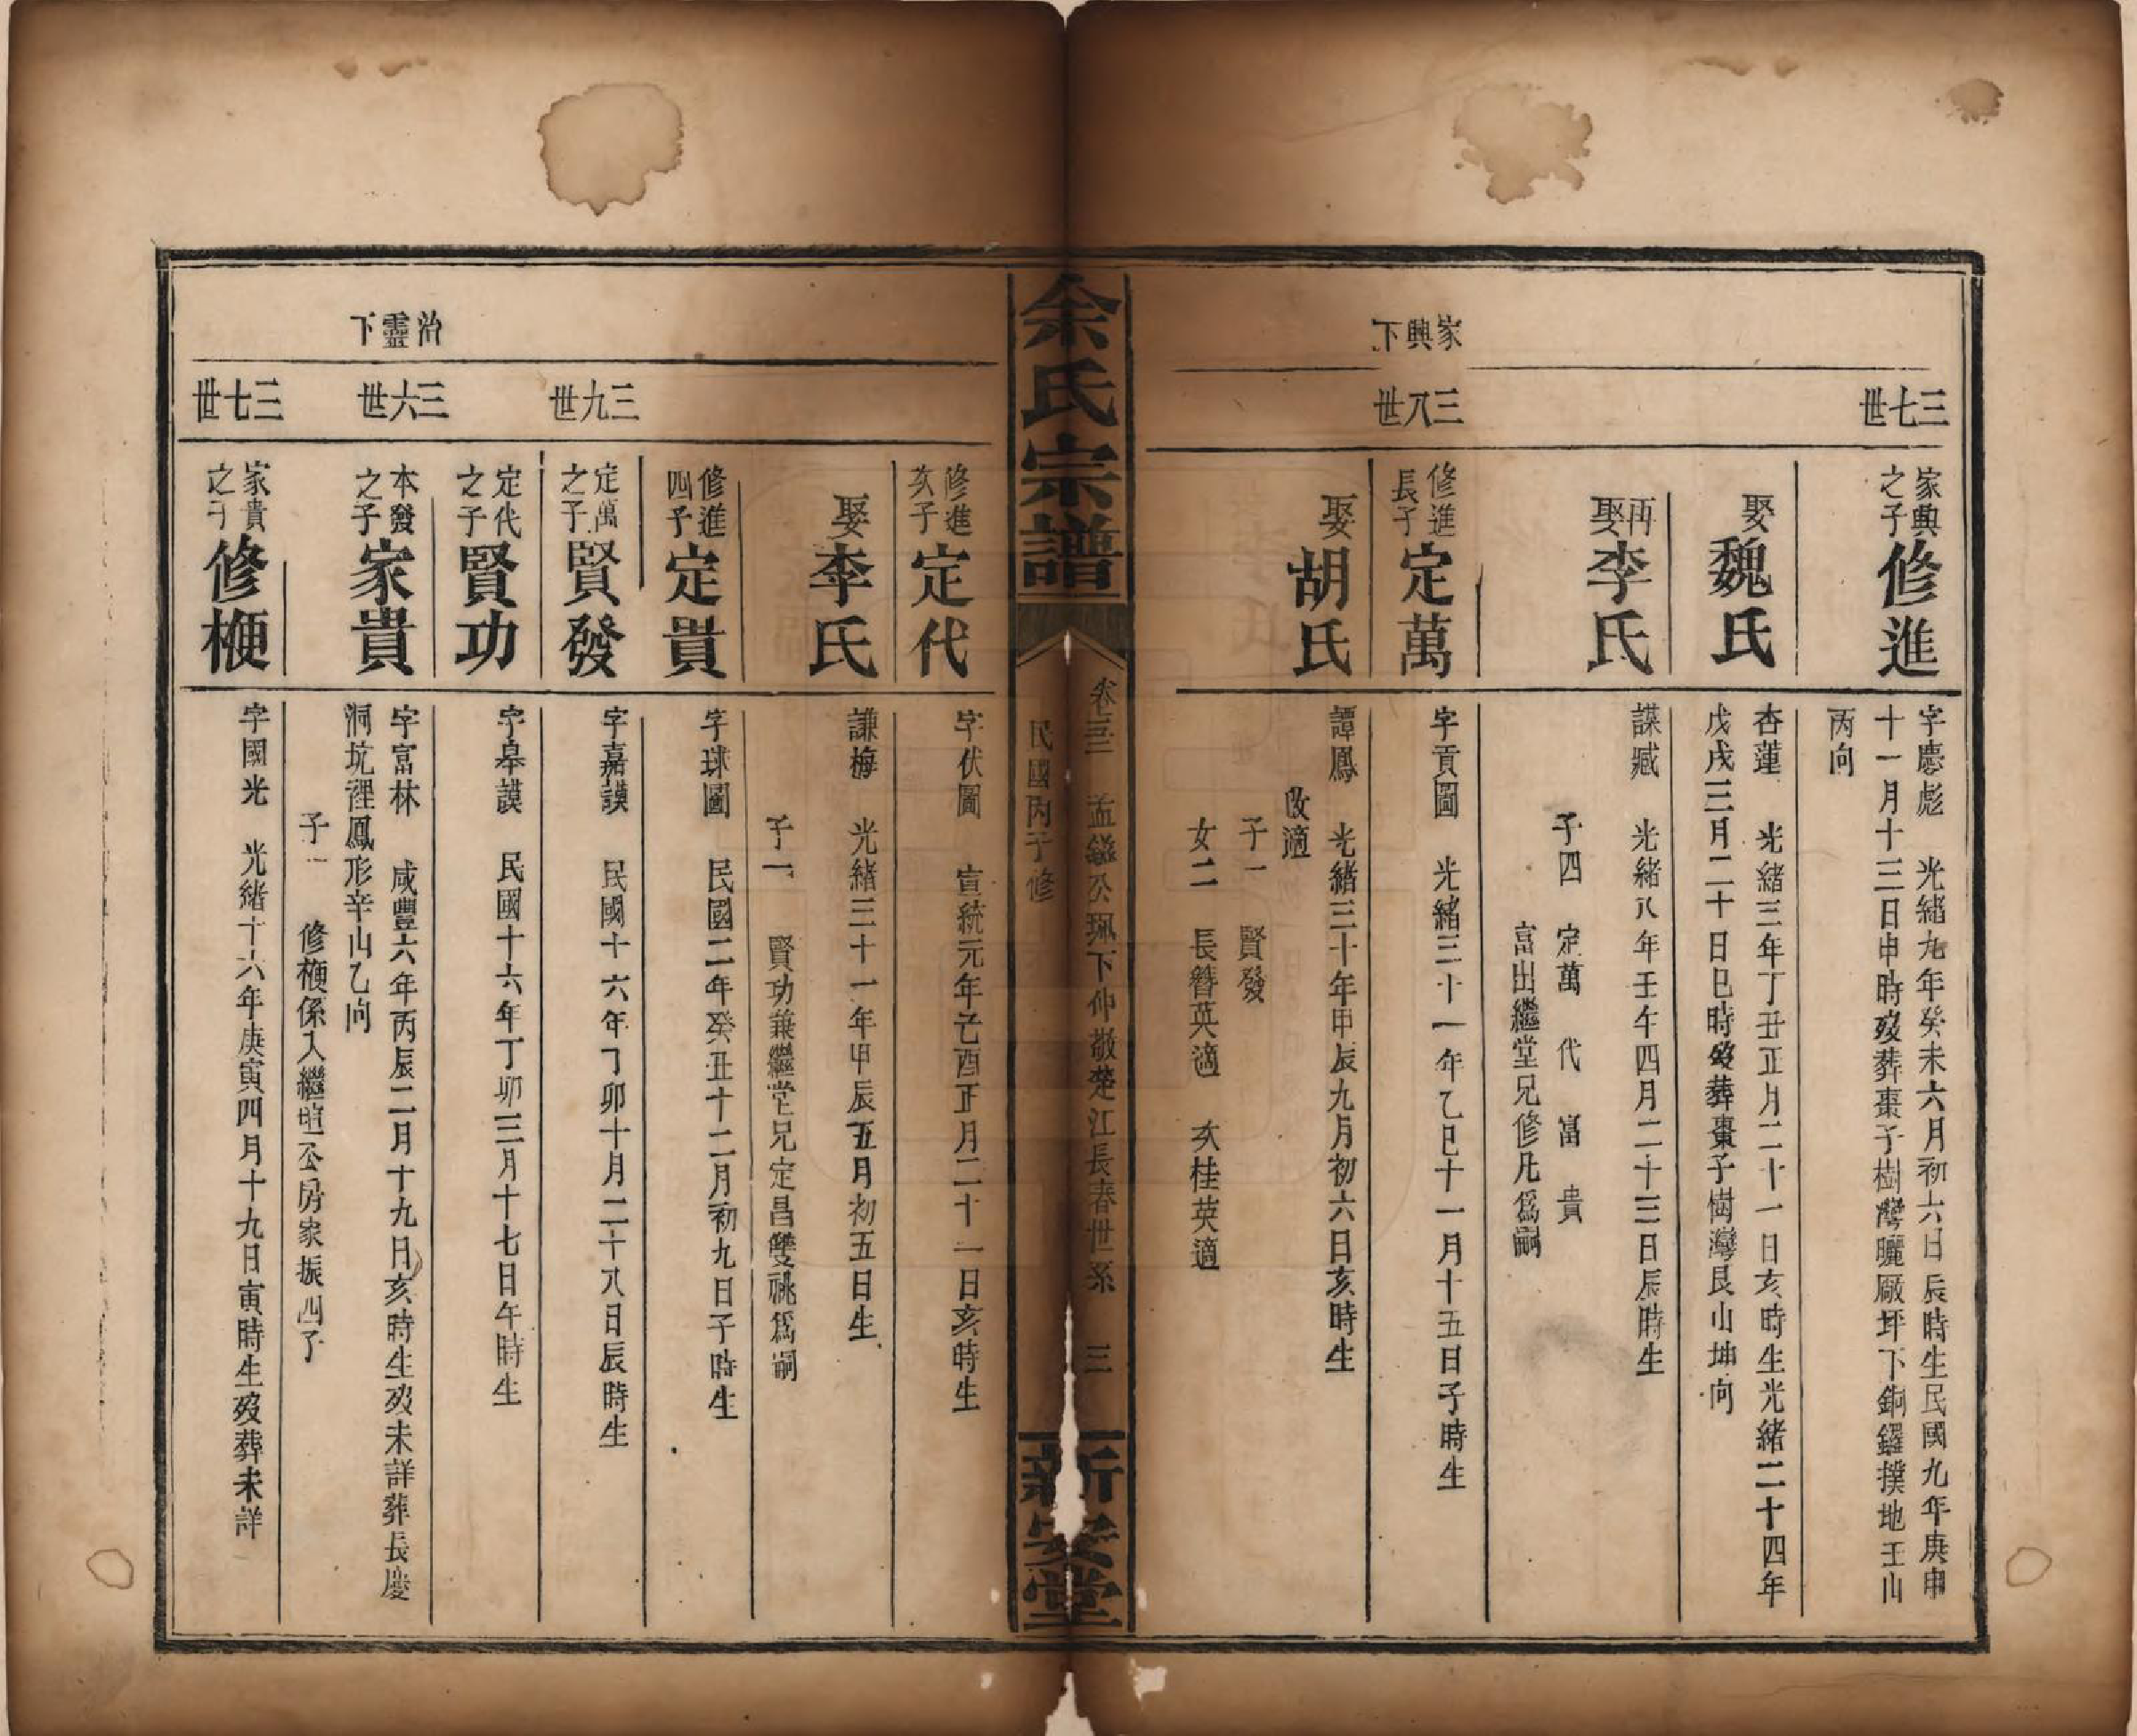 家興下
三七世
家興之子修進
字慶彪 光緒九年癸未六月初六日辰時生民國九年庚申
十一月十三日申時歿葬棗子樹灣曬廠坪下銅鑼撲地壬山
丙向
娶魏氏
杏蓮 光緒三年丁丑正月二十一日亥時生光緒二十四年
戊戌三月二十日巳時歿葬棗子樹灣艮山坤向
再娶李氏
謀臧 光緒八年壬午四月二十三日辰時生
子四 定萬 代 富 貴
富出繼堂兄修凡爲嗣
三八世
修進長子定萬
字貢圖 光緒三十一年乙巳十一月十五日子時生
娶胡氏
譚鳳 光緒三十年甲辰九月初六日亥時生
改適
子一 賢發
女二 長簪英適 次桂英適
余氏宗譜
卷三 孟鎰公珮下仲敬楚江長春世系 三
民國丙子修
新安堂
修進次子定代
字伏圖 宣統元年己酉正月二十一日亥時生
娶李氏
謙梅 光緒三十一年甲辰五月初五日生
子一 賢功兼繼堂兄定昌雙祧爲嗣
修進四子定貴
字球圖 民國二年癸丑十二月初九日子時生
三九世
定萬之子賢發
字嘉謨 民國十六年丁卯十月二十八日辰時生
定代之子賢功
字皋謨 民國十六年丁卯三月十七日午時生
治靈下
三六世
本發之子家貴
字富林 咸豐六年丙辰二月十九日亥時生歿未詳葬長慶
洞坑裡鳳形辛山乙向
子一 修梗係入繼塏公房家振四子
三七世
家貴之子修梗
字國光 光緒十六年庚寅四月十九日寅時生歿葬未詳